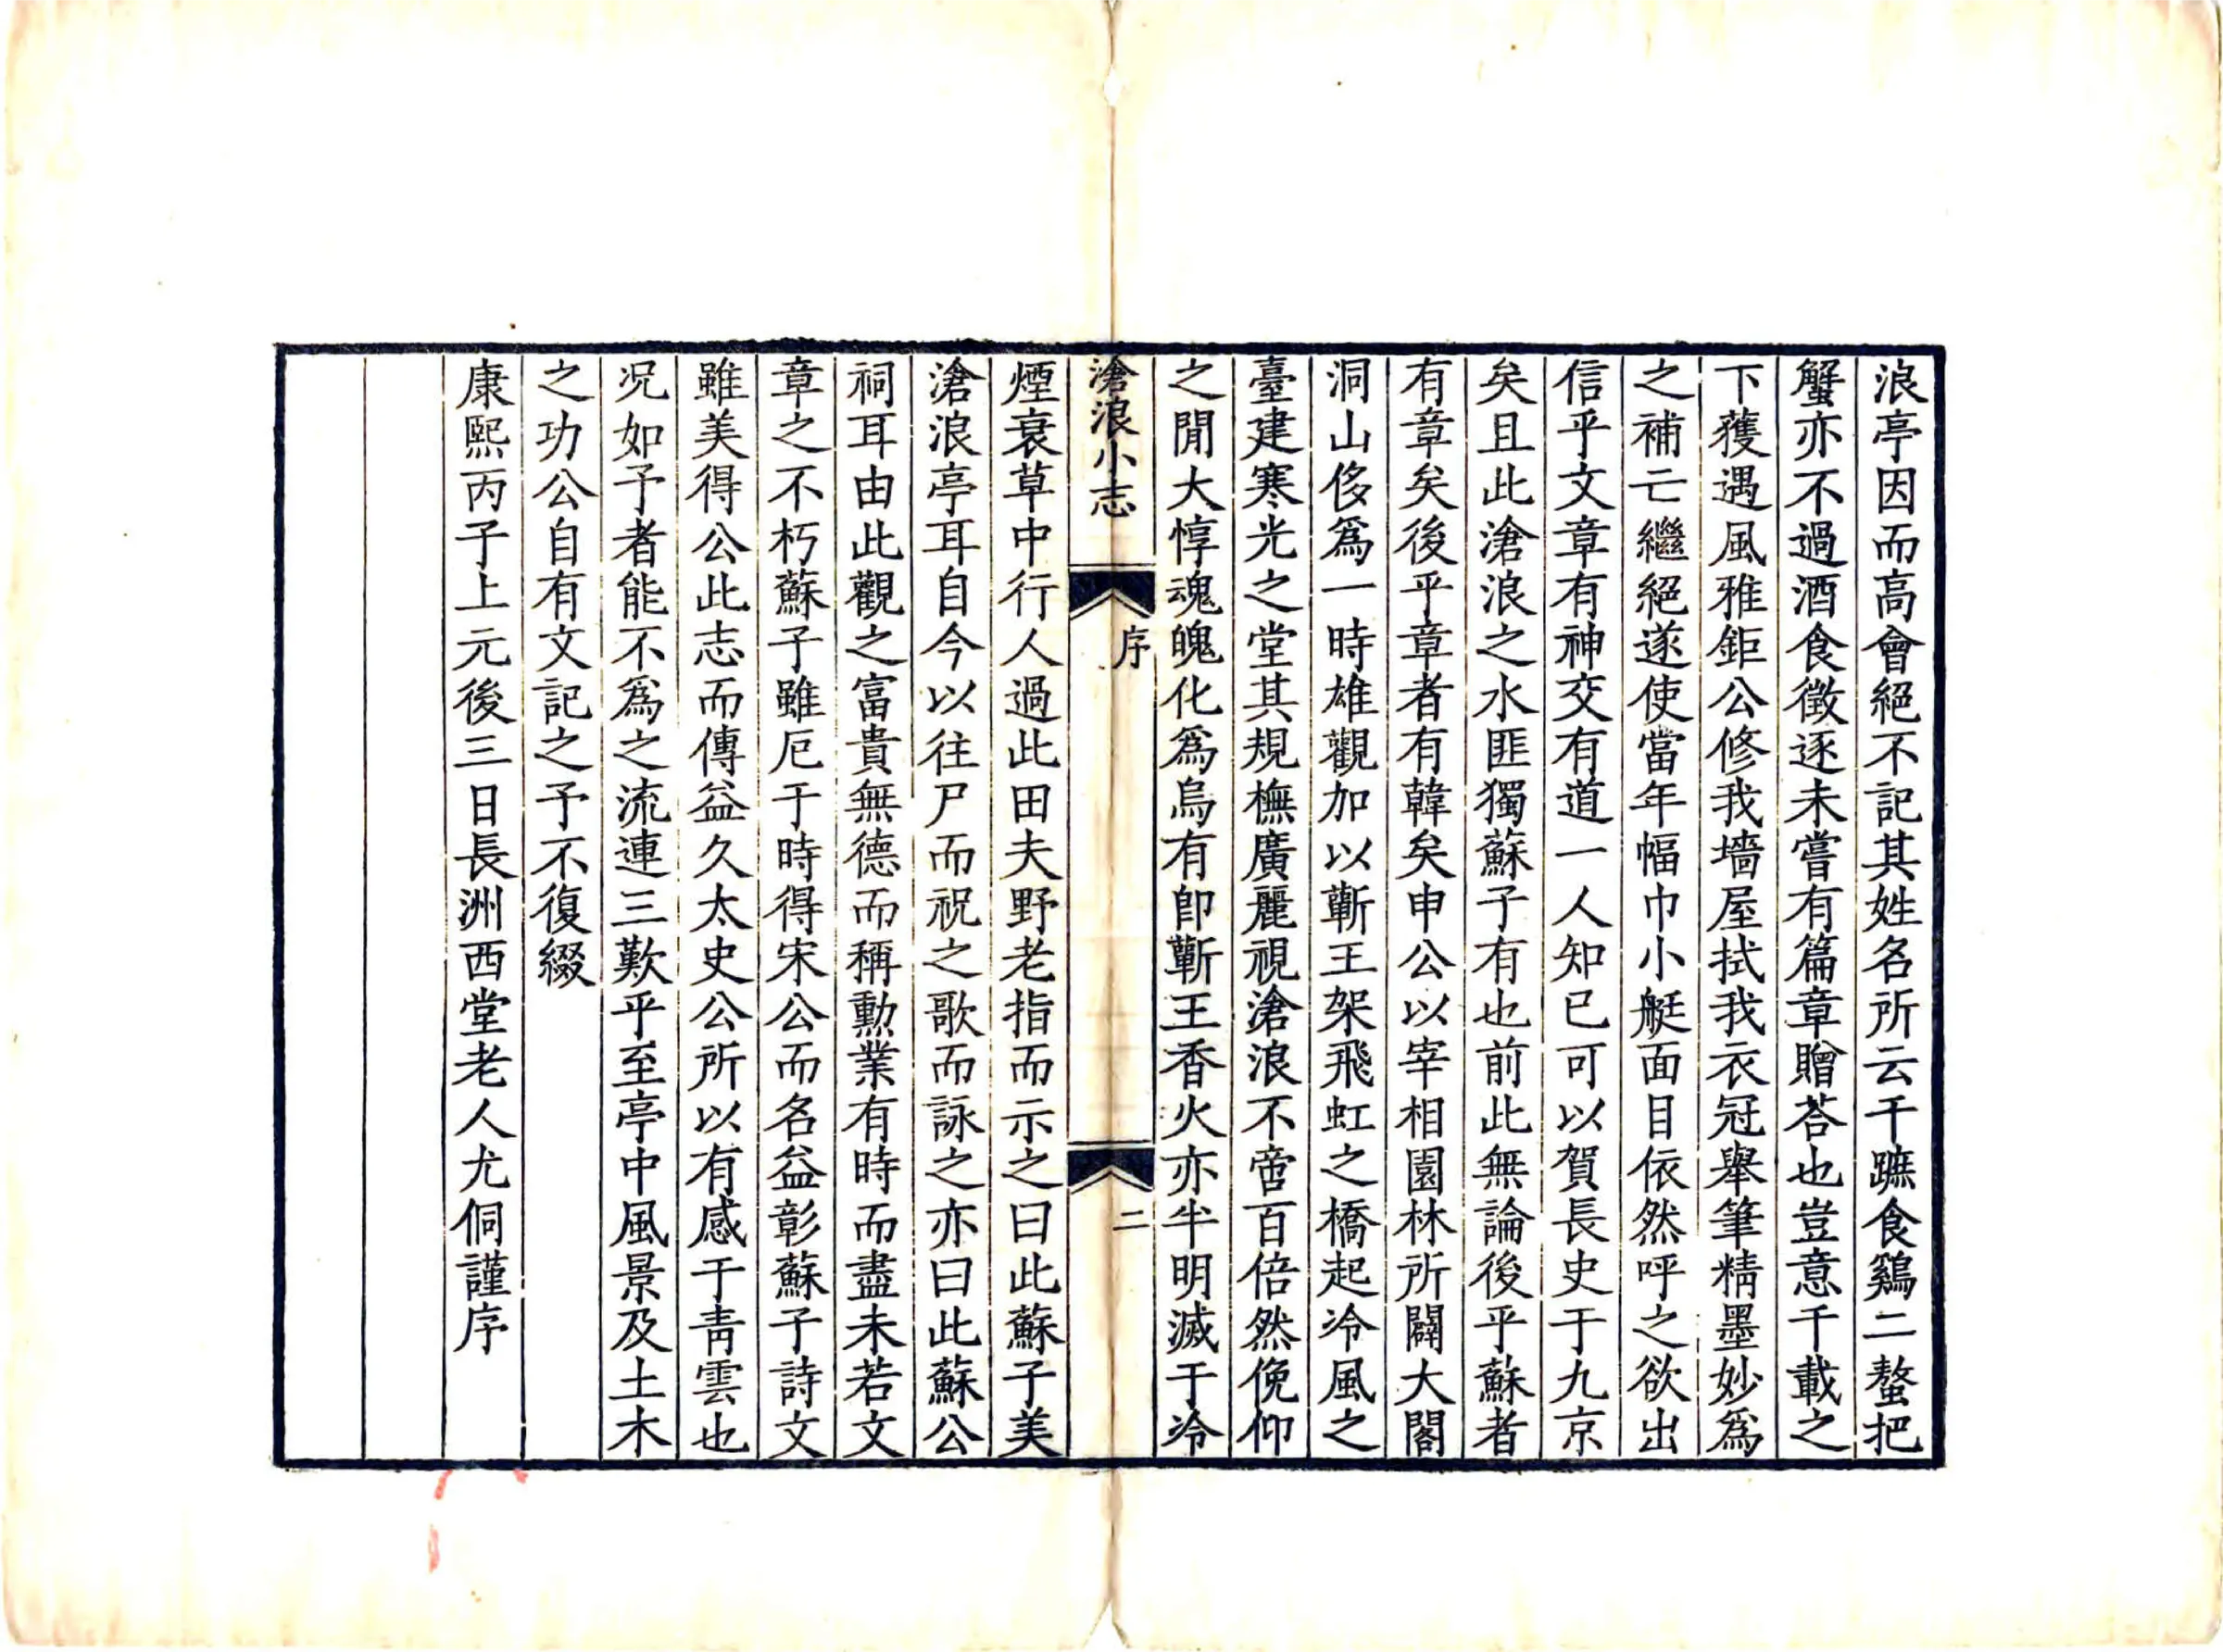 浪亭因而高會絕不記其姓名所云千蹠食鷄二螯把
蟹亦不過酒食徵逐未嘗有篇章贈荅也豈意千載之
下獲遇風雅鉅公修我墻屋拭我衣冠舉筆精墨妙爲
之補亡繼絕遂使當年幅巾小艇面目依然呼之欲出
信乎文章有神交有道一人知已可以賀長史于九京
矣且此滄浪之水匪獨蘇子有也前此無論後乎蘇者
有章矣後乎章者有韓矣申公以宰相園林所闢大閣
洞山侈爲一時雄觀加以蘄王架飛虹之橋起冷風之
臺建寒光之堂其規橅廣麗視滄浪不啻百倍然俛仰
之閒大惇魂魄化爲烏有卽蘄王香火亦半明滅于冷
滄浪小志
序
二
煙衰草中行人過此田夫野老指而示之曰此蘇子美
滄浪亭耳自今以往尸而祝之歌而詠之亦曰此蘇公
祠耳由此觀之富貴無德而稱勳業有時而盡未若文
章之不朽蘇子雖厄于時得宋公而名益彰蘇子詩文
雖美得公此志而傳益久太史公所以有感于靑雲也
况如予者能不爲之流連三歎乎至亭中風景及土木
之功公自有文記之予不復綴
康熙丙子上元後三日長洲西堂老人尤侗謹序